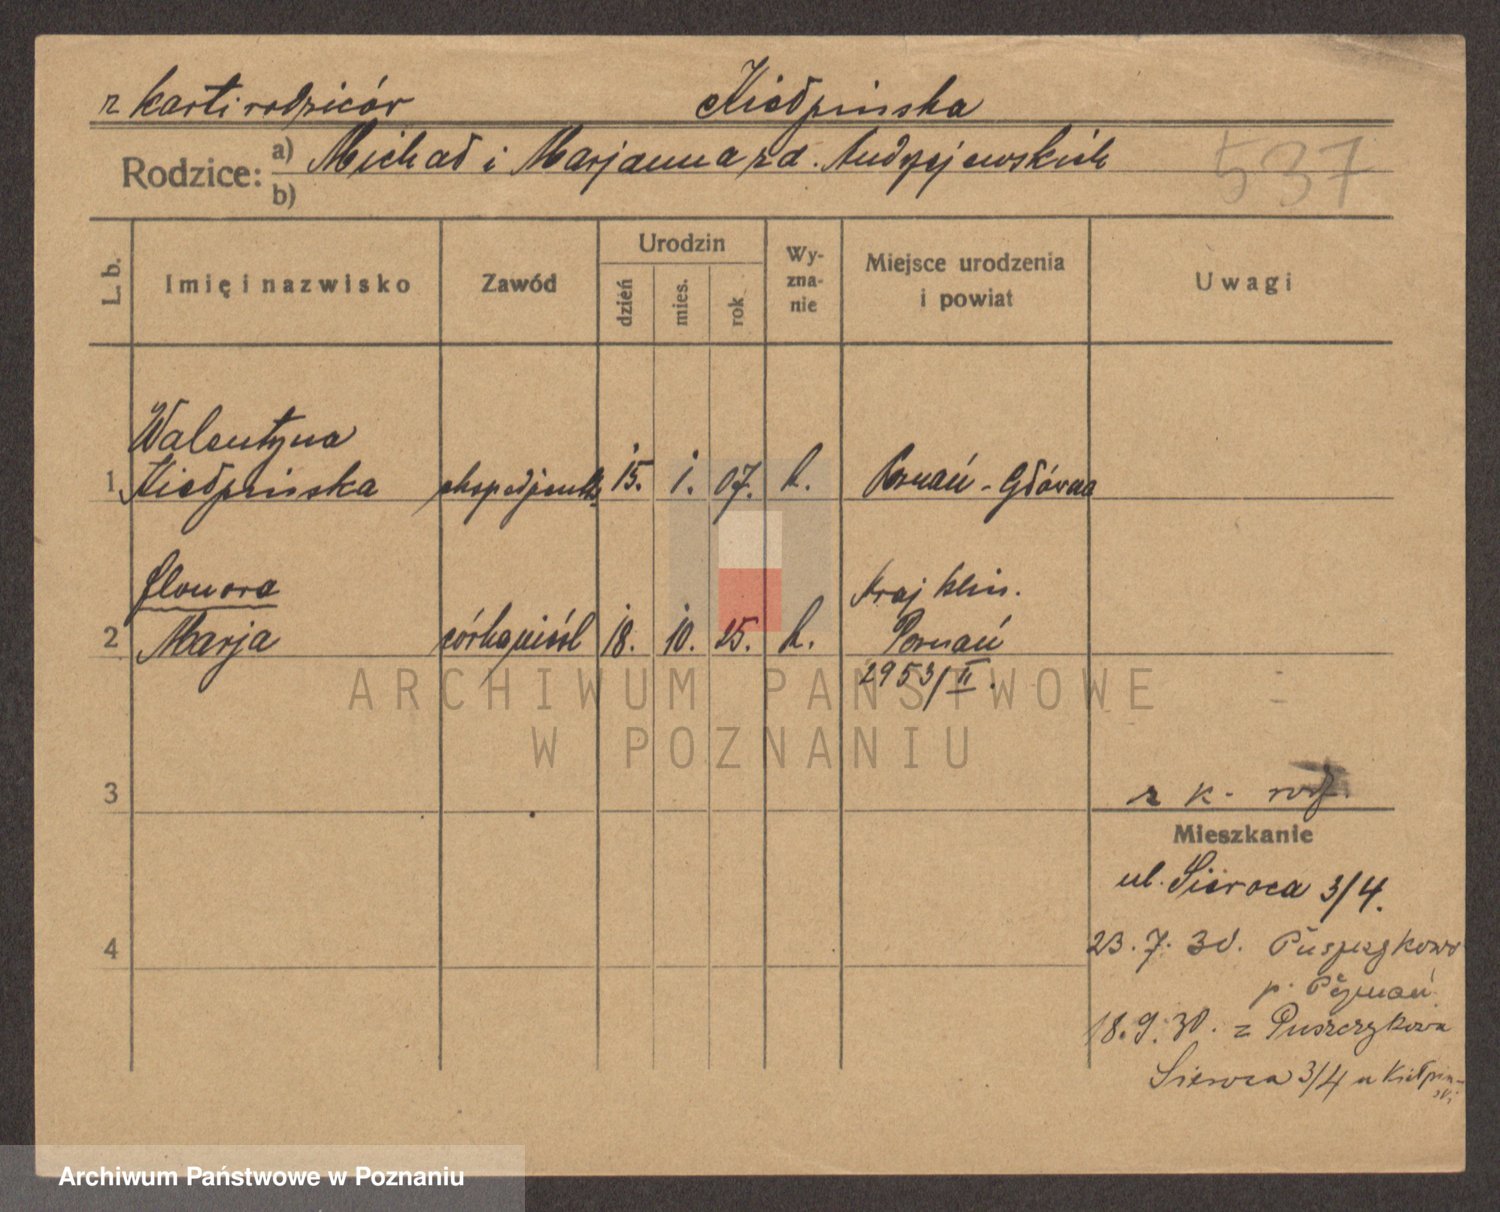 z karti rodziców Kiełpińska
Rodzice: a) Michał i Marjanna z d. Andrzejewskich
b)
537
L. b.
Imię i nazwisko
Zawód
Urodzin
dzień
mies.
rok
Wy-
zna-
nie
Miejsce urodzenia
i powiat
Uwagi
Walentyna
1 Kiełpińska ekspedjentka 15. 1. 07. k. Poznań - Główna
Elonora
Kraj klin.
2 Marja córka nieśl 18. 10. 25. k. Poznań
2953/II.
3
z k. rodz.
Mieszkanie
ul. Sieroca 3/4.
4
23. 7. 30. Puszczykowo
p. Poznań
18. 9. 30. z Puszczykowa
Sieroca 3/4 u Kiełpiń-
ski
ARCHIWUM PAŃSTWOWE
W POZNANIU
Archiwum Państwowe w Poznaniu